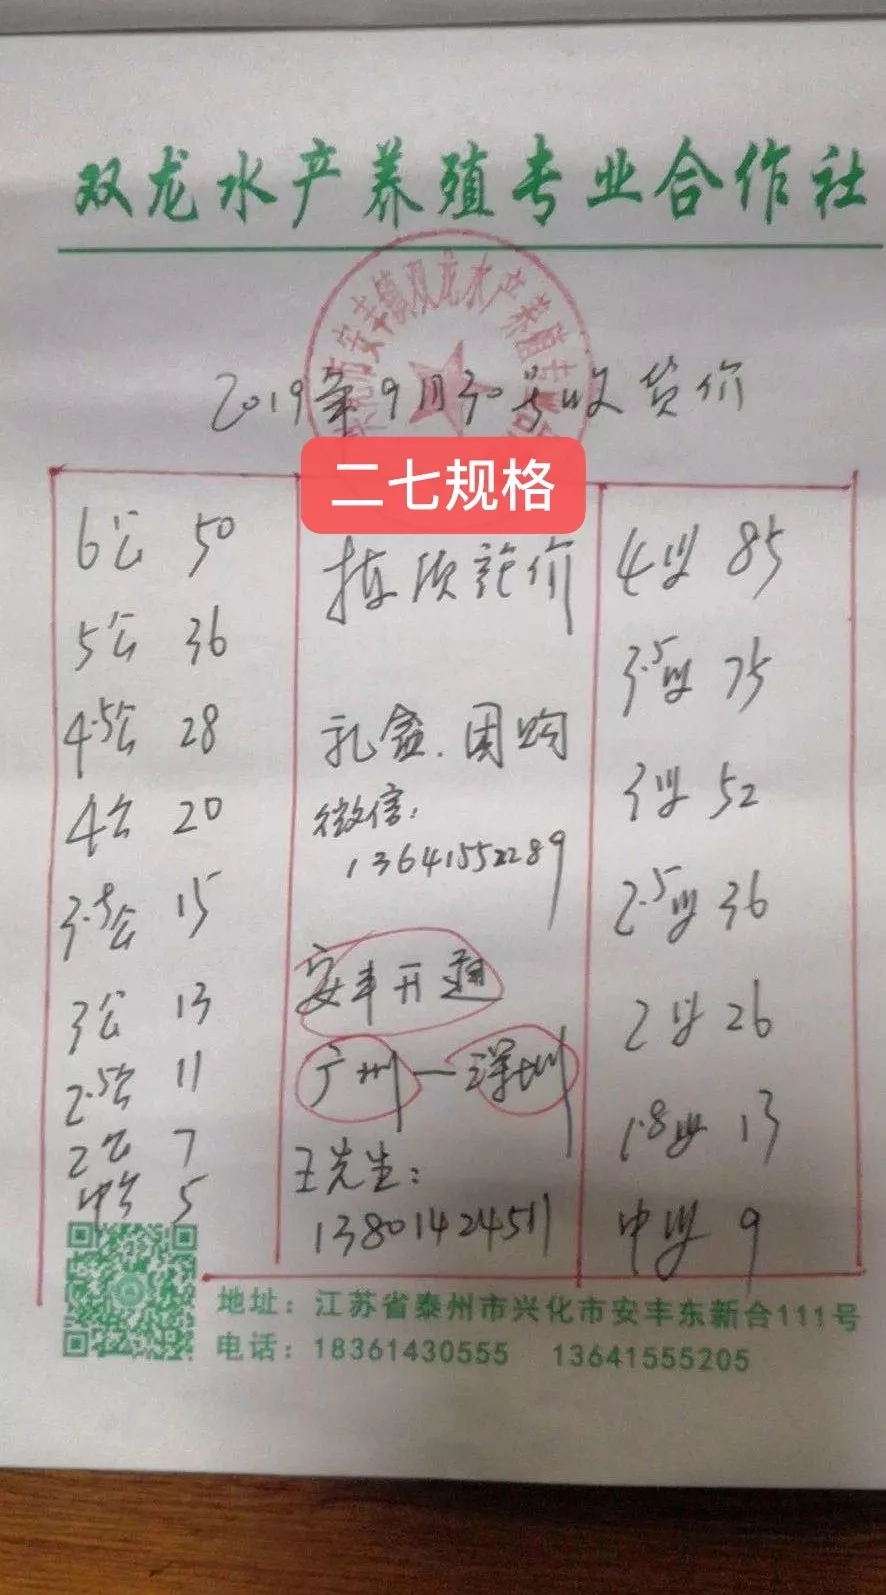 双龙水产养殖专业合作社
2019年9月30号收货价
二七规格
6公 50
5公 36
4.5公 28
4公 20
3.5公 15
3公 13
2.5公 11
2公 7
中公 5
价
礼盒.团购
微信:
13641552289
安丰开通
广州一深圳
王先生:
13801424511
4母 85
3.5母 75
3母 52
2.5母 36
2母 26
1.8母 13
中母 9
地址:江苏省泰州市兴化市安丰东新合111号
电话:18361430555 13641555205